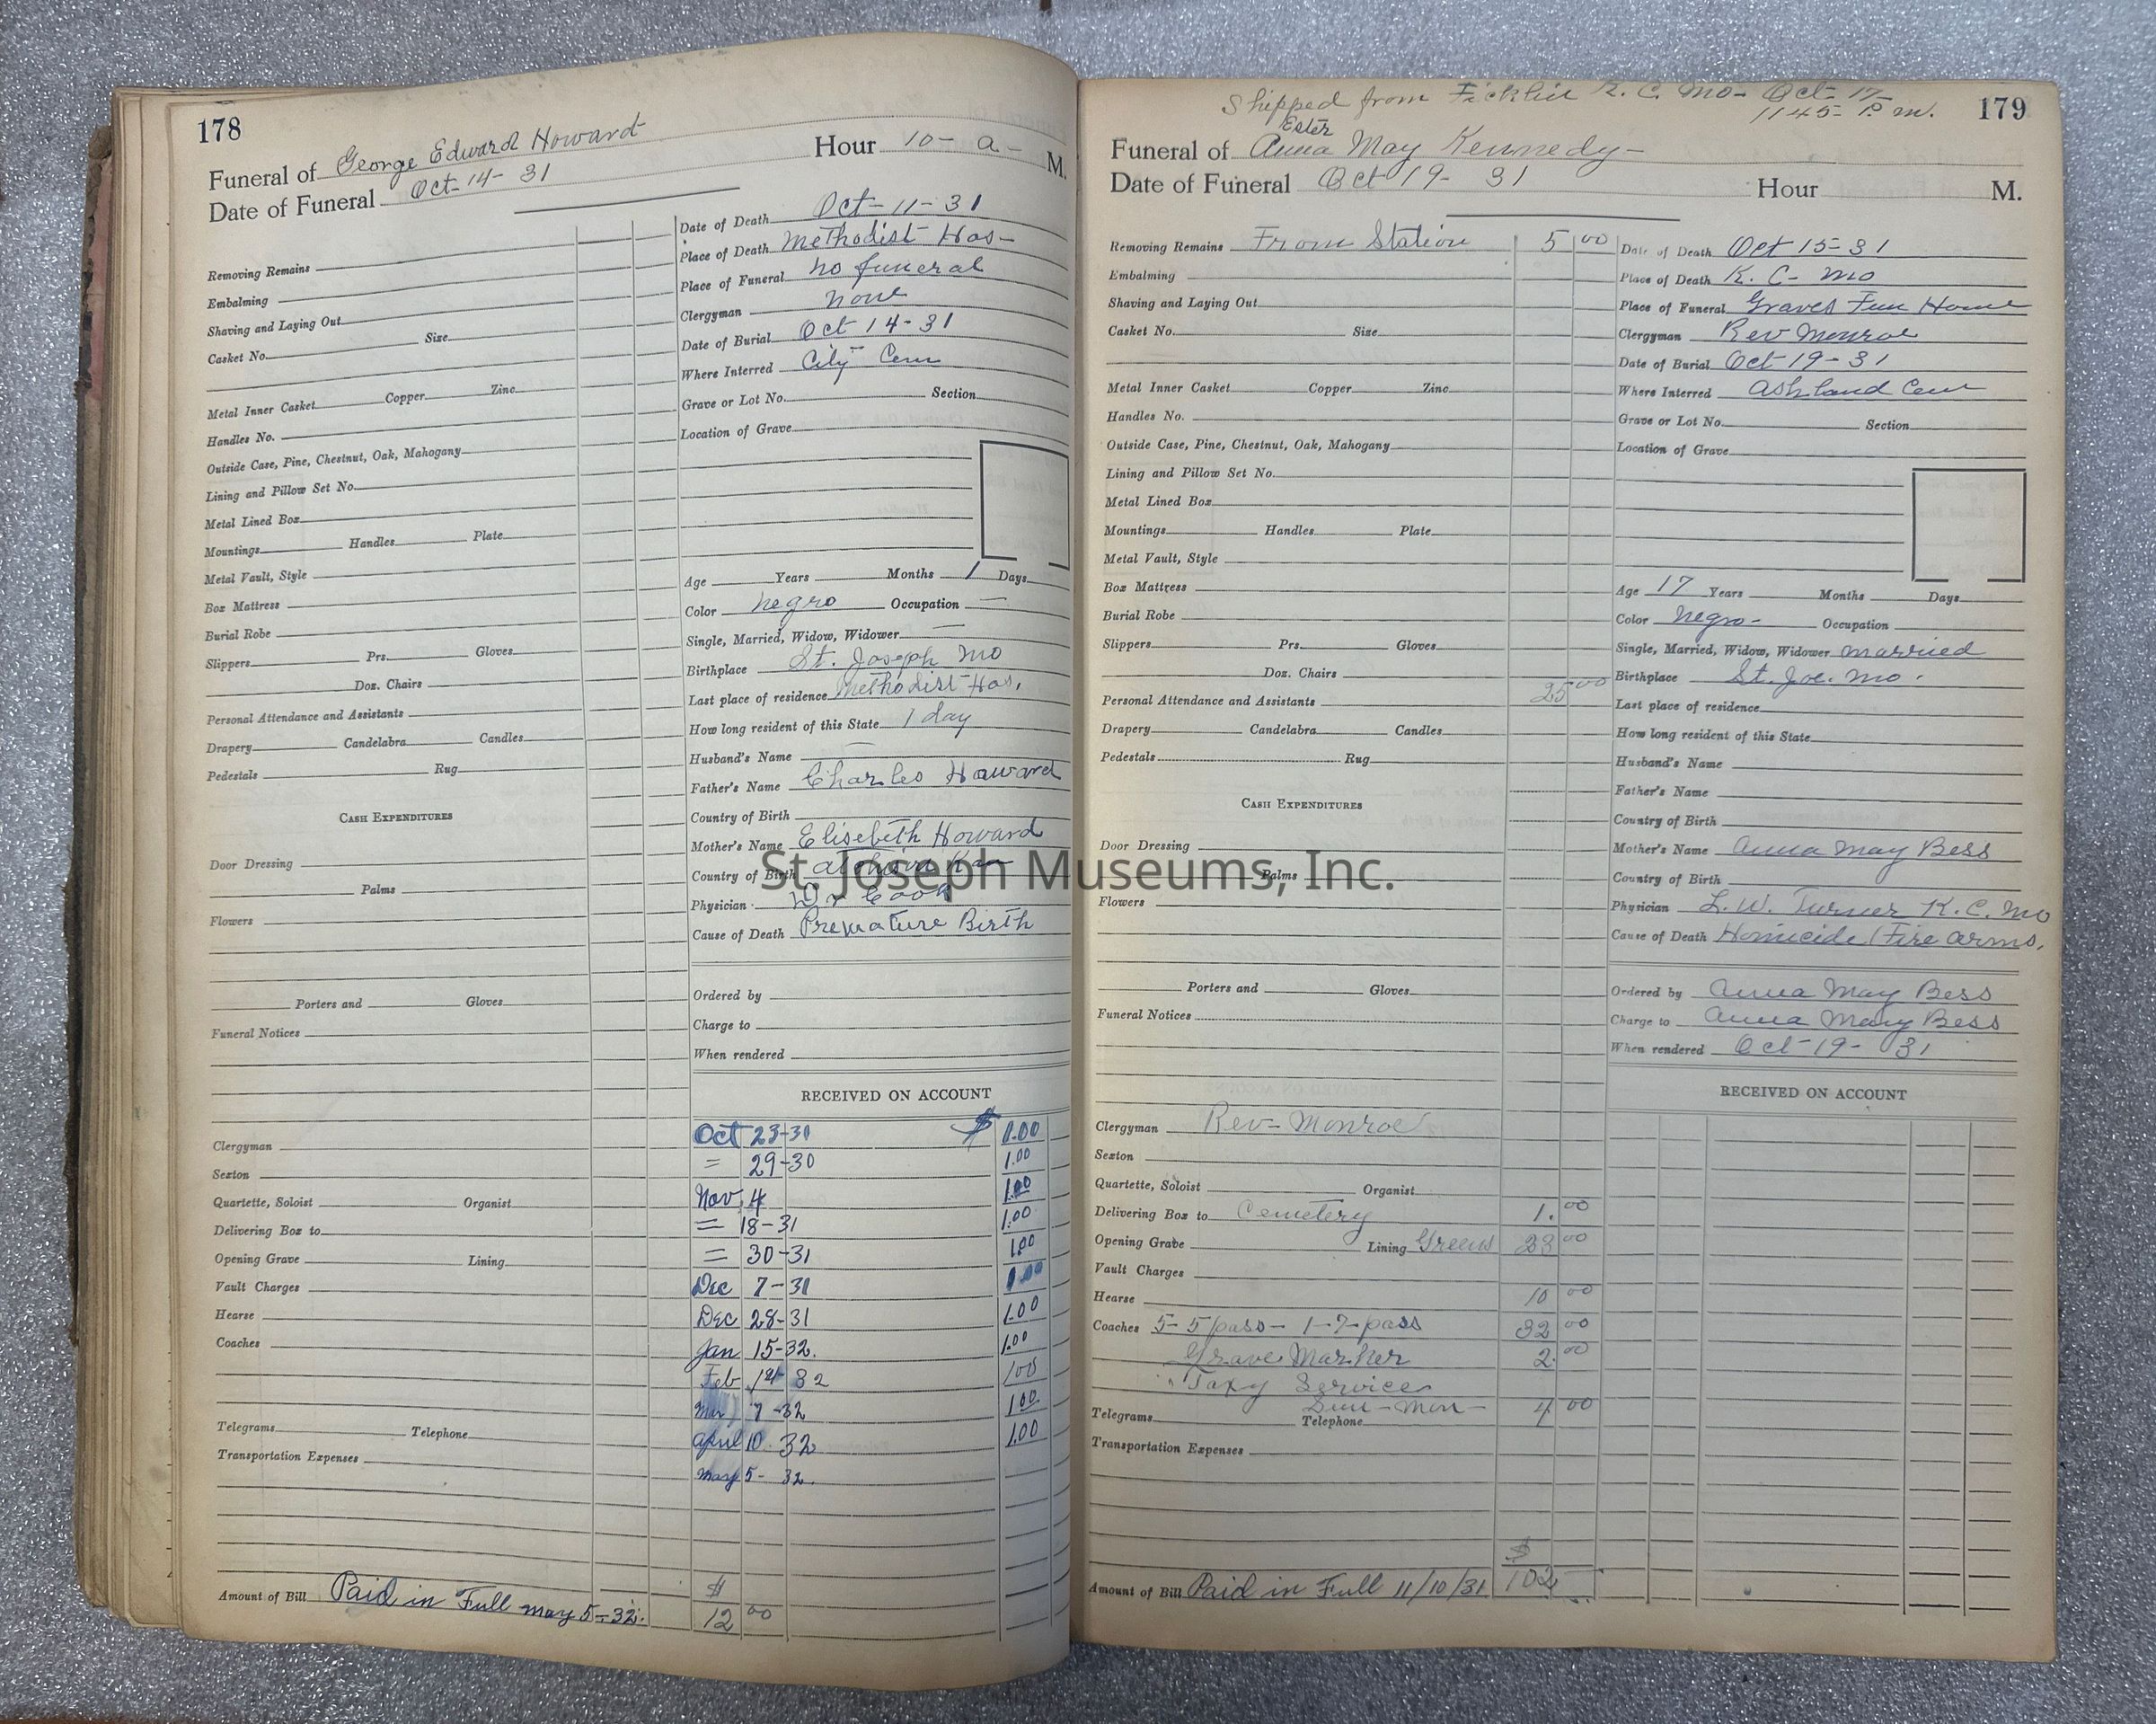 178
Funeral of George Edward Howard Hour 10- a- M.
Date of Funeral Oct-14-31
Removing Remains
Embalming
Shaving and Laying Out
Casket No. Size
Metal Inner Casket Copper Zinc
Handles No.
Outside Case, Pine, Chestnut, Oak, Mahogany
Lining and Pillow Set No.
Metal Lined Box
Mountings Handles Plate
Metal Vault, Style
Box Mattress
Burial Robe
Slippers Prs. Gloves
Doz. Chairs
Personal Attendance and Assistants
Drapery Candelabra Candles
Pedestals Rug
CASH EXPENDITURES
Door Dressing
Palms
Flowers
Porters and Gloves
Funeral Notices
Clergyman
Sexton
Quartette, Soloist Organist
Delivering Box to
Opening Grave Lining
Vault Charges
Hearse
Coaches
Telegrams Telephone
Transportation Expenses
Amount of Bill Paid in Full may 5-32. $ 12 00
Date of Death Oct-11-31
Place of Death Methodist Hos-
Place of Funeral no funeral
Clergyman none
Date of Burial Oct 14-31
Where Interred City Cem
Grave or Lot No. Section
Location of Grave
Age Years Months 1 Days
Color negro Occupation —
Single, Married, Widow, Widower —
Birthplace St. Joseph Mo
Last place of residence Methodist Hos.
How long resident of this State 1 day
Husband's Name —
Father's Name Charles Howard
Country of Birth
Mother's Name Elisebeth Howard
Country of Birth atchison Kan
Physician Dr Cook
Cause of Death Premature Birth
Ordered by
Charge to
When rendered
RECEIVED ON ACCOUNT
Oct 23-31 $ 1.00
= 29-30 1.00
Nov. 4 1.00
= 18-31 1.00
= 30-31 1.00
Dec 7-31 1.00
Dec 28-31 1.00
Jan 15-32. 1.00
Feb 14 32 1.00
Mar 7-32 1.00
april 10. 32 1.00
may 5- 32.
179
Shipped from Ficklin K. C. Mo- Oct-17-
1145- P. M.
Ester
Funeral of Anna May Kennedy-
Date of Funeral Oct 19- 31 Hour M.
Removing Remains From Station 5 00
Embalming
Shaving and Laying Out
Casket No. Size
Metal Inner Casket Copper Zinc
Handles No.
Outside Case, Pine, Chestnut, Oak, Mahogany
Lining and Pillow Set No.
Metal Lined Box
Mountings Handles Plate
Metal Vault, Style
Box Mattress
Burial Robe
Slippers Prs. Gloves
Doz. Chairs
Personal Attendance and Assistants 25 00
Drapery Candelabra Candles
Pedestals Rug
CASH EXPENDITURES
Door Dressing
Palms
Flowers
Porters and Gloves
Funeral Notices
Clergyman Rev- Monroe
Sexton
Quartette, Soloist Organist
Delivering Box to Cemetery 1. 00
Opening Grave Lining Greens 23 00
Vault Charges
Hearse 10 00
Coaches 5-5/pass- 1-7-pass 32 00
Grave Marker 2. 00
Taxy Service
Sun-Mon- 4 00
Telegrams Telephone
Transportation Expenses
Amount of Bill Paid in Full 11/10/31 $ 102
Date of Death Oct 15-31
Place of Death K. C- Mo
Place of Funeral Graves Fun Home
Clergyman Rev Monroe
Date of Burial Oct 19-31
Where Interred Ashland Cem
Grave or Lot No. Section
Location of Grave
Age 17 Years Months Days
Color negro- Occupation
Single, Married, Widow, Widower married
Birthplace St. Joe. Mo.
Last place of residence
How long resident of this State
Husband's Name
Father's Name
Country of Birth
Mother's Name Anna May Bess
Country of Birth
Physician L. W. Turner K. C. Mo
Cause of Death Homicide/Fire arms.
Ordered by Anna May Bess
Charge to Anna May Bess
When rendered Oct-19-31
RECEIVED ON ACCOUNT
St. Joseph Museums, Inc.